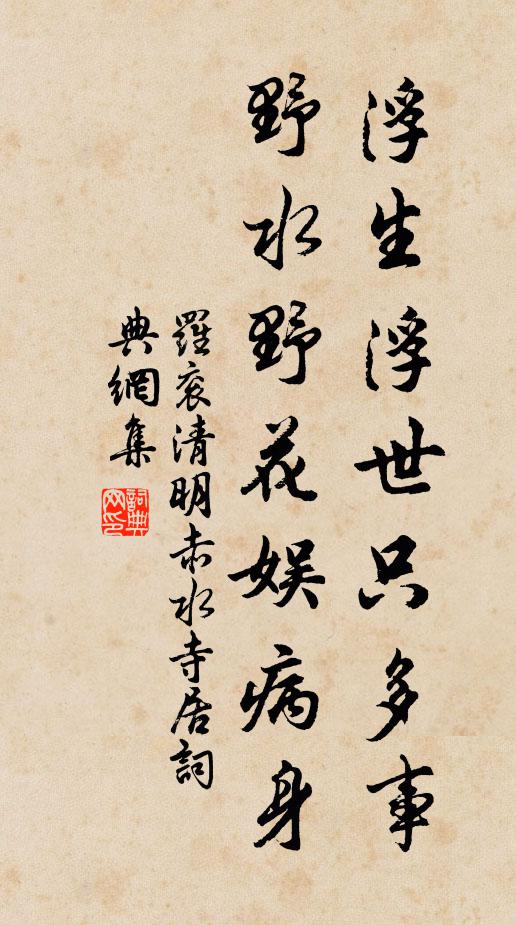 浮生浮世只多事
野水野花娱病身
羅衮清明赤水寺居詞
典網集
詞典网印